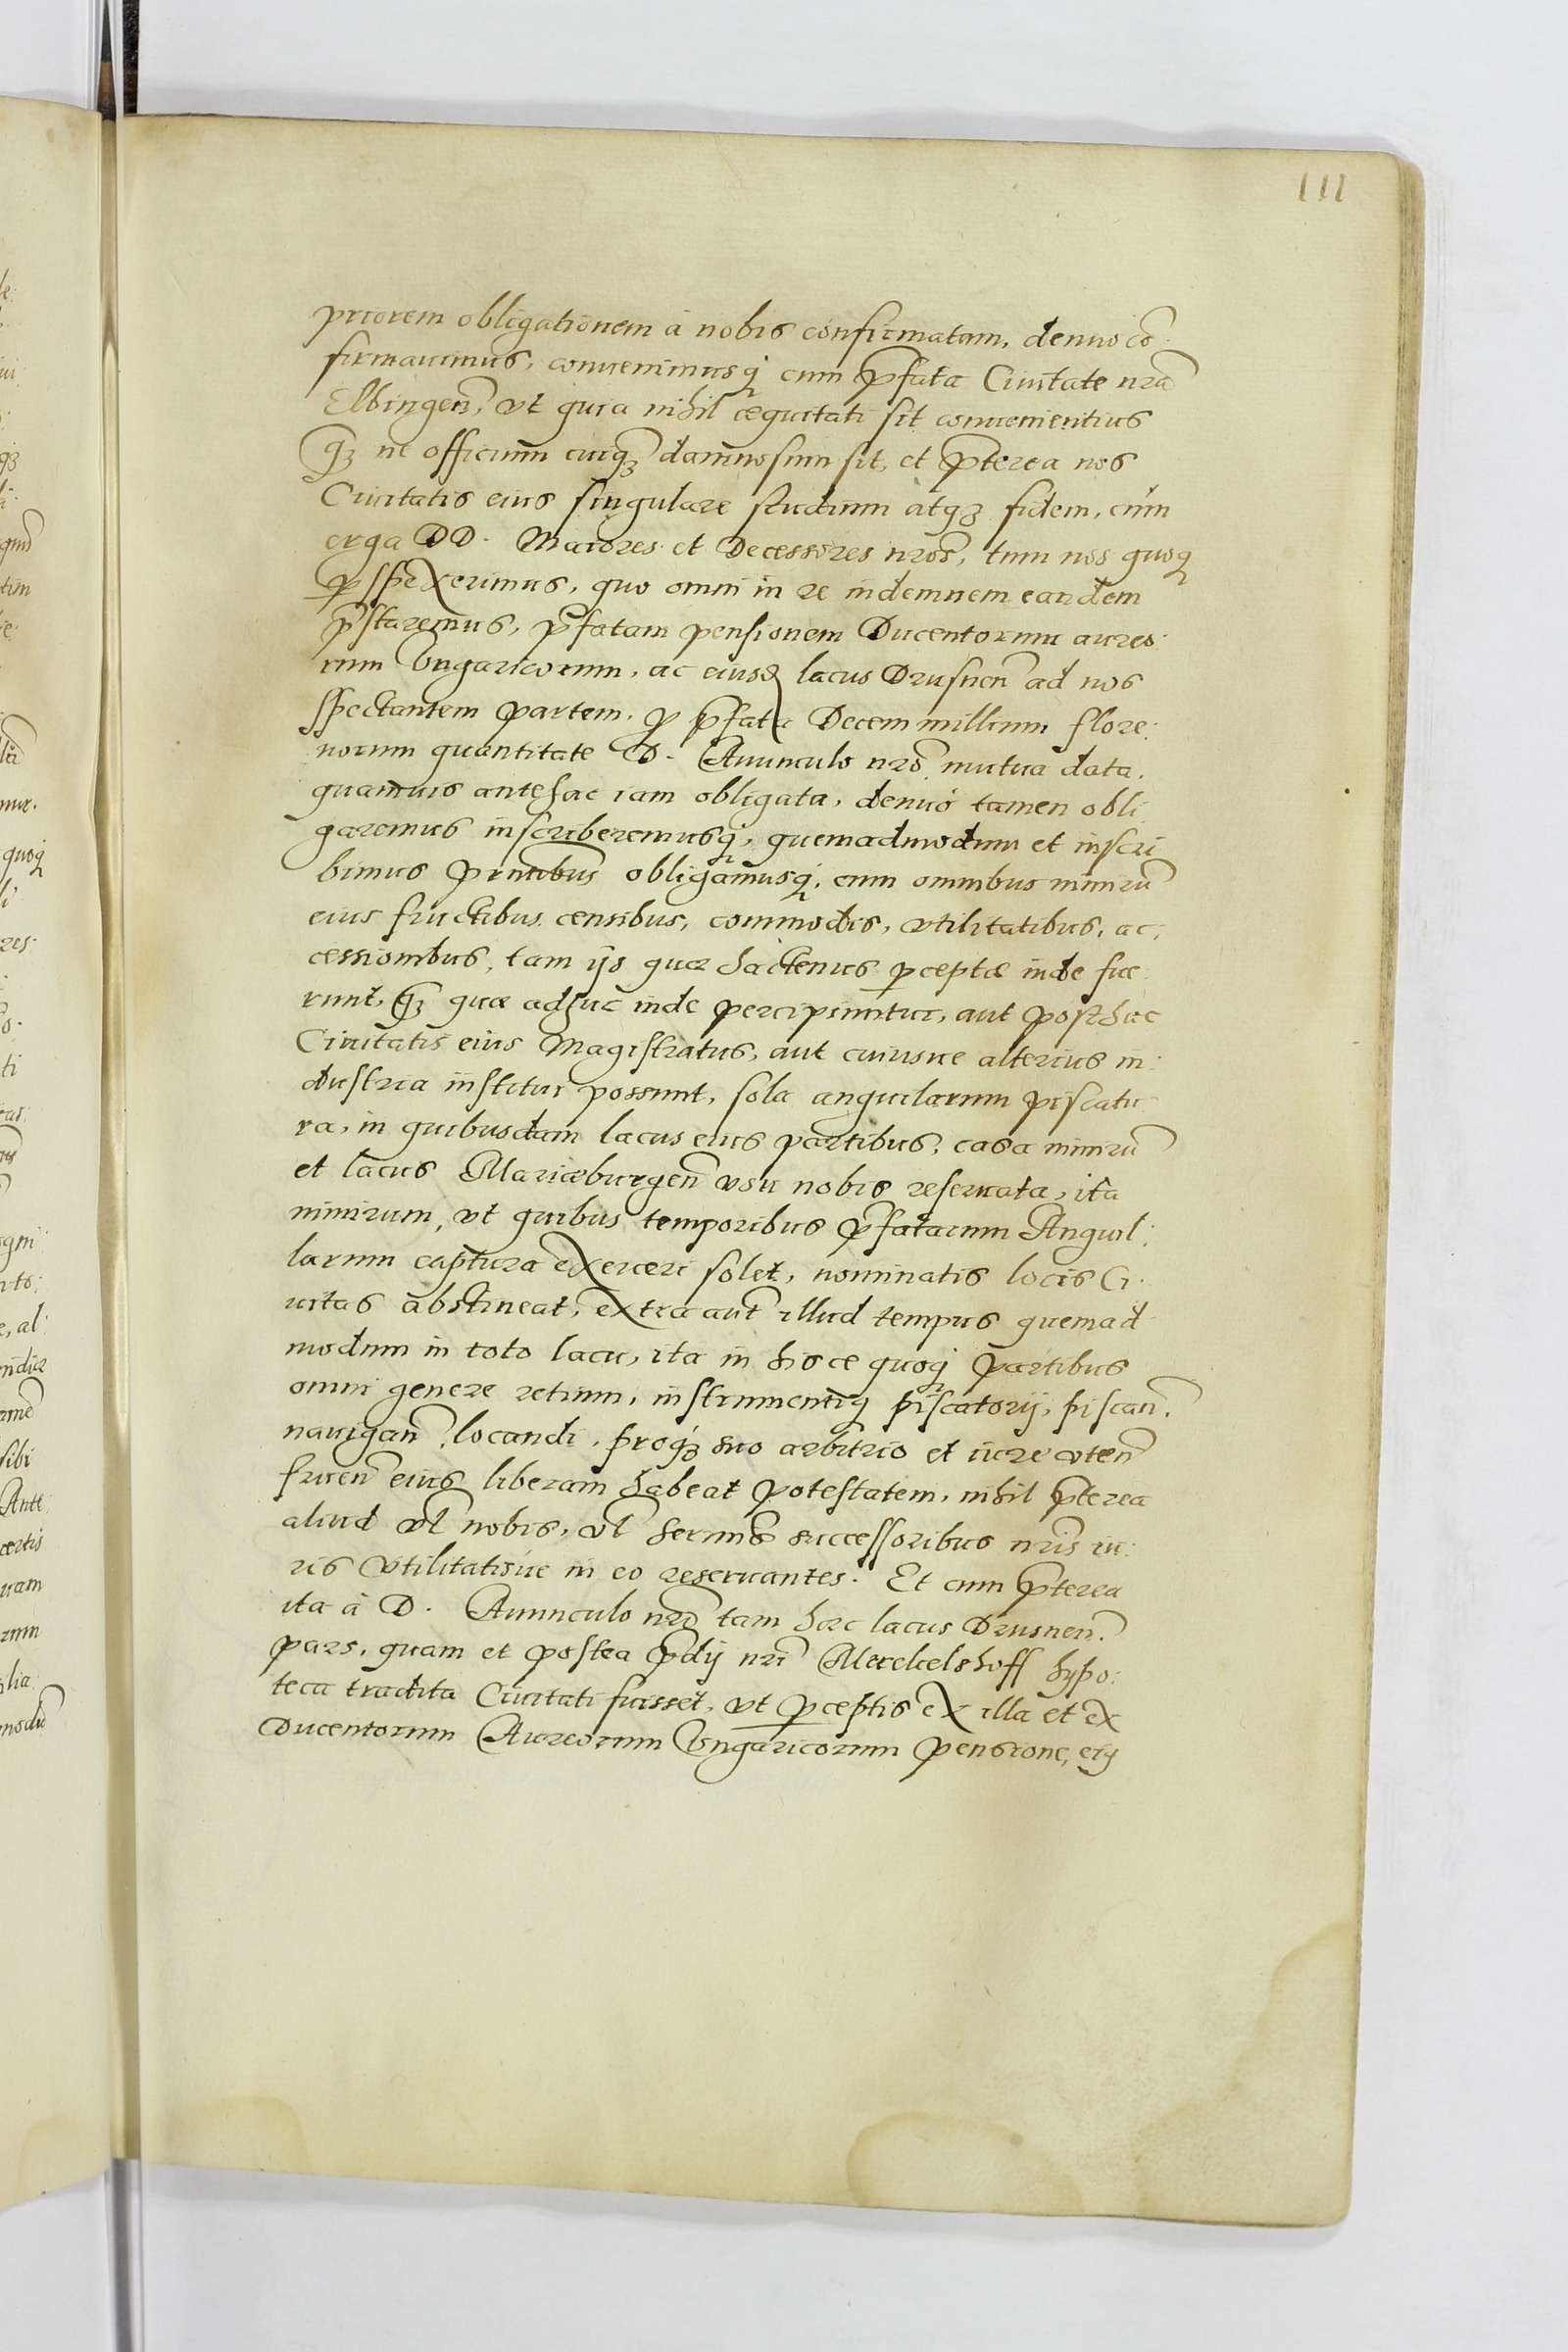 111
priorem obligationem à nobis confirmatam, denuo cō
firmauimus, conuenimusq́ cum p̄fata Ciuitate nr̄a
Elbingen̄, vt quia nihil æquitati sit conuenientius
q̄ȝ ne officium cuiq̄ȝ damnosum sit, et p̄terea nos
Ciuitatis eius singulare studium atqȝ fidem, cùm
erga DD. Maiores et Decessores nr̄os, tum nos quoq̨
ꝑspexerimus, quo omni in re indemnem eandem
p̄staremus, p̄fatam pensionem Ducentorum aureo:
rum Vngaricorum, ac eiusd̨ lacus Drusnen̄ ad nos
spectantem partem, ꝓ p̄fata Decem millium flore:
norum quantitate D. Auunculo nr̄o mutua data,
quamuis antehac iam obligata, denuò tamen obli
garemus inscriberemusq́, quemadmodum et inscri
bimus pr̄ntibus obligamusq́, cum omnibus nimirū
eius fructibus censibus, commodis, vtilitatibus, ac:
cessionibus, tam ijs quæ hactenus ꝑceptæ inde fue:
runt, q̄ȝ quæ adhuc inde percipiuntur, aut posthac
Ciuitatis eius Magistratus, aut cuiusue alterius in:
dustria institui possunt, sola anguilarum piscatu
ra, in quibusdam lacus eius partibus, casa nimirū
et lacus Mariæburgen̄ vsu nobis reseruata, ita
nimirum, vt quibus temporibus p̄fatarum Anguil:
larum captura exerceri solet, nominatis locis Ci:
uitas abstineat, extra aut̄ illud tempus quemad
modum in toto lacu, ita in hisce quoq́ partibus
omni genere retium, instrumentiq̨ piscatorij, piscan̄.
nauigan̄, locandi, proqȝ suo arbitrio et iure vten̄
fruen̄ eius liberam habeat potestatem, nihil p̄terea
aliud vl̄ nobis, vl̄ serm̄is successoribus nr̄is iu:
ris vtilitatisue in eo reseruantes. Et cum p̄terea
ita à D. Auunculo nr̄o tam hæc lacus Drusnen̄.
pars, quam et postea p̄dij nr̄i Merckelshoff hypo:
teca tradita Ciuitati fuisset, vt ꝑceptis ex illa et ex
Ducentorum Aureorum Vngaricorum pensione, eiq̨